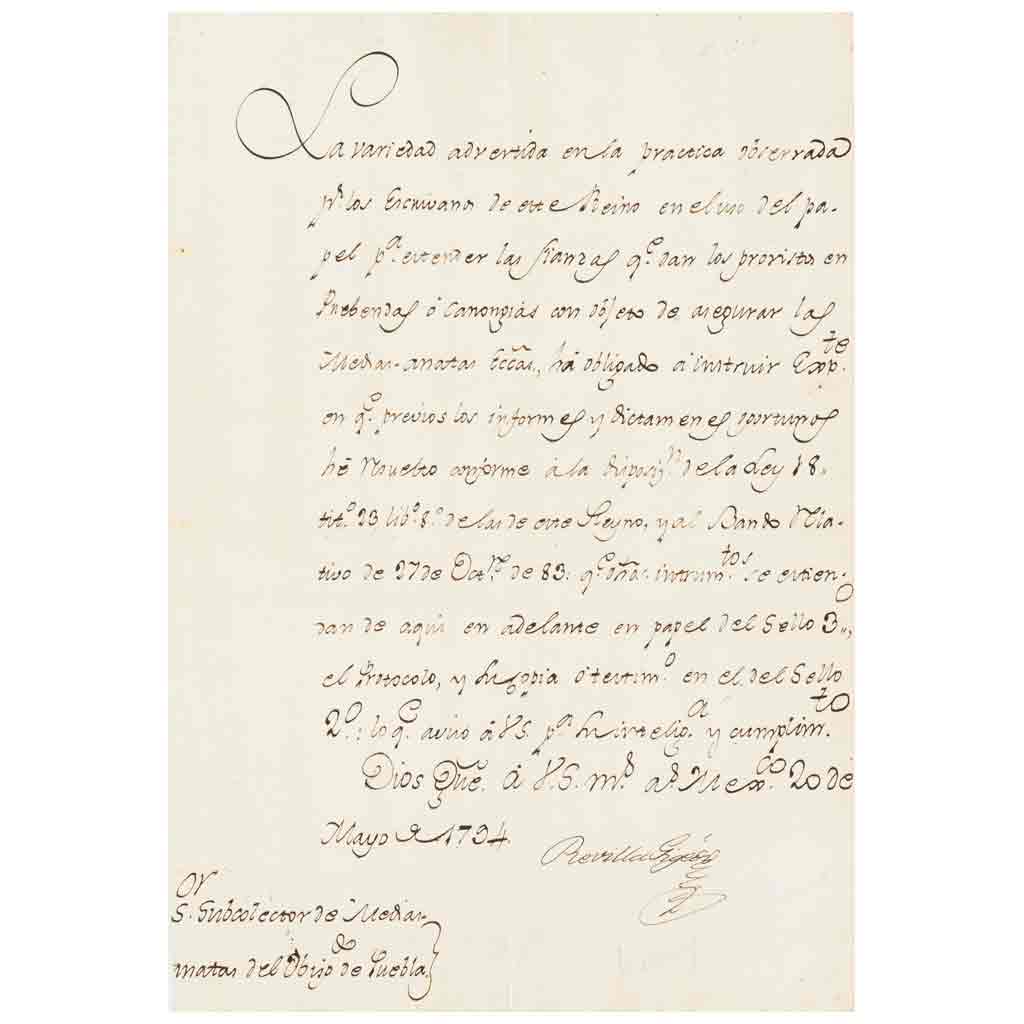 La variedad advertida en la practica observada
pr. los Escrivanos de este Reino en el uso del pa-
pel pa. extender las fianzas qe. dan los provistos en
Prebendas ó Canongias con objeto de asegurar las
Medias-anatas Eccâs., há obligado á instruir Expte.
en qe. prévios los informes y dictamenes oportunos
hé resuelto conforme á la disposin. de la Ley 18.
tito. 23 libo. 8o. de las de este Reyno, y al Bando rela-
tivo de 27 de Octre. de 83: qe. dhos. instrumtos. se extien-
dan de aquí en adelante en papel del Sello 3o.,
el Protocolo, y su copia ó testimo. en el del Sello
2o.: lo qe. aviso á VS. pa. su inteliga. y cumplimto.
Dios Gue. á V.S. ms. as. Mexco. 20 de
Mayo de 1794.
Revilla Gigedo
Sor. Subcolector de Medias-
anatas del Obispdo. de Puebla.